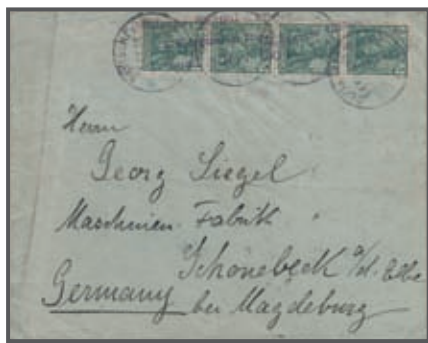 Herrn
Georg Siegel
Maschinen-Fabrik
Schönebeck a/d. Elbe
Germany bei Magdeburg